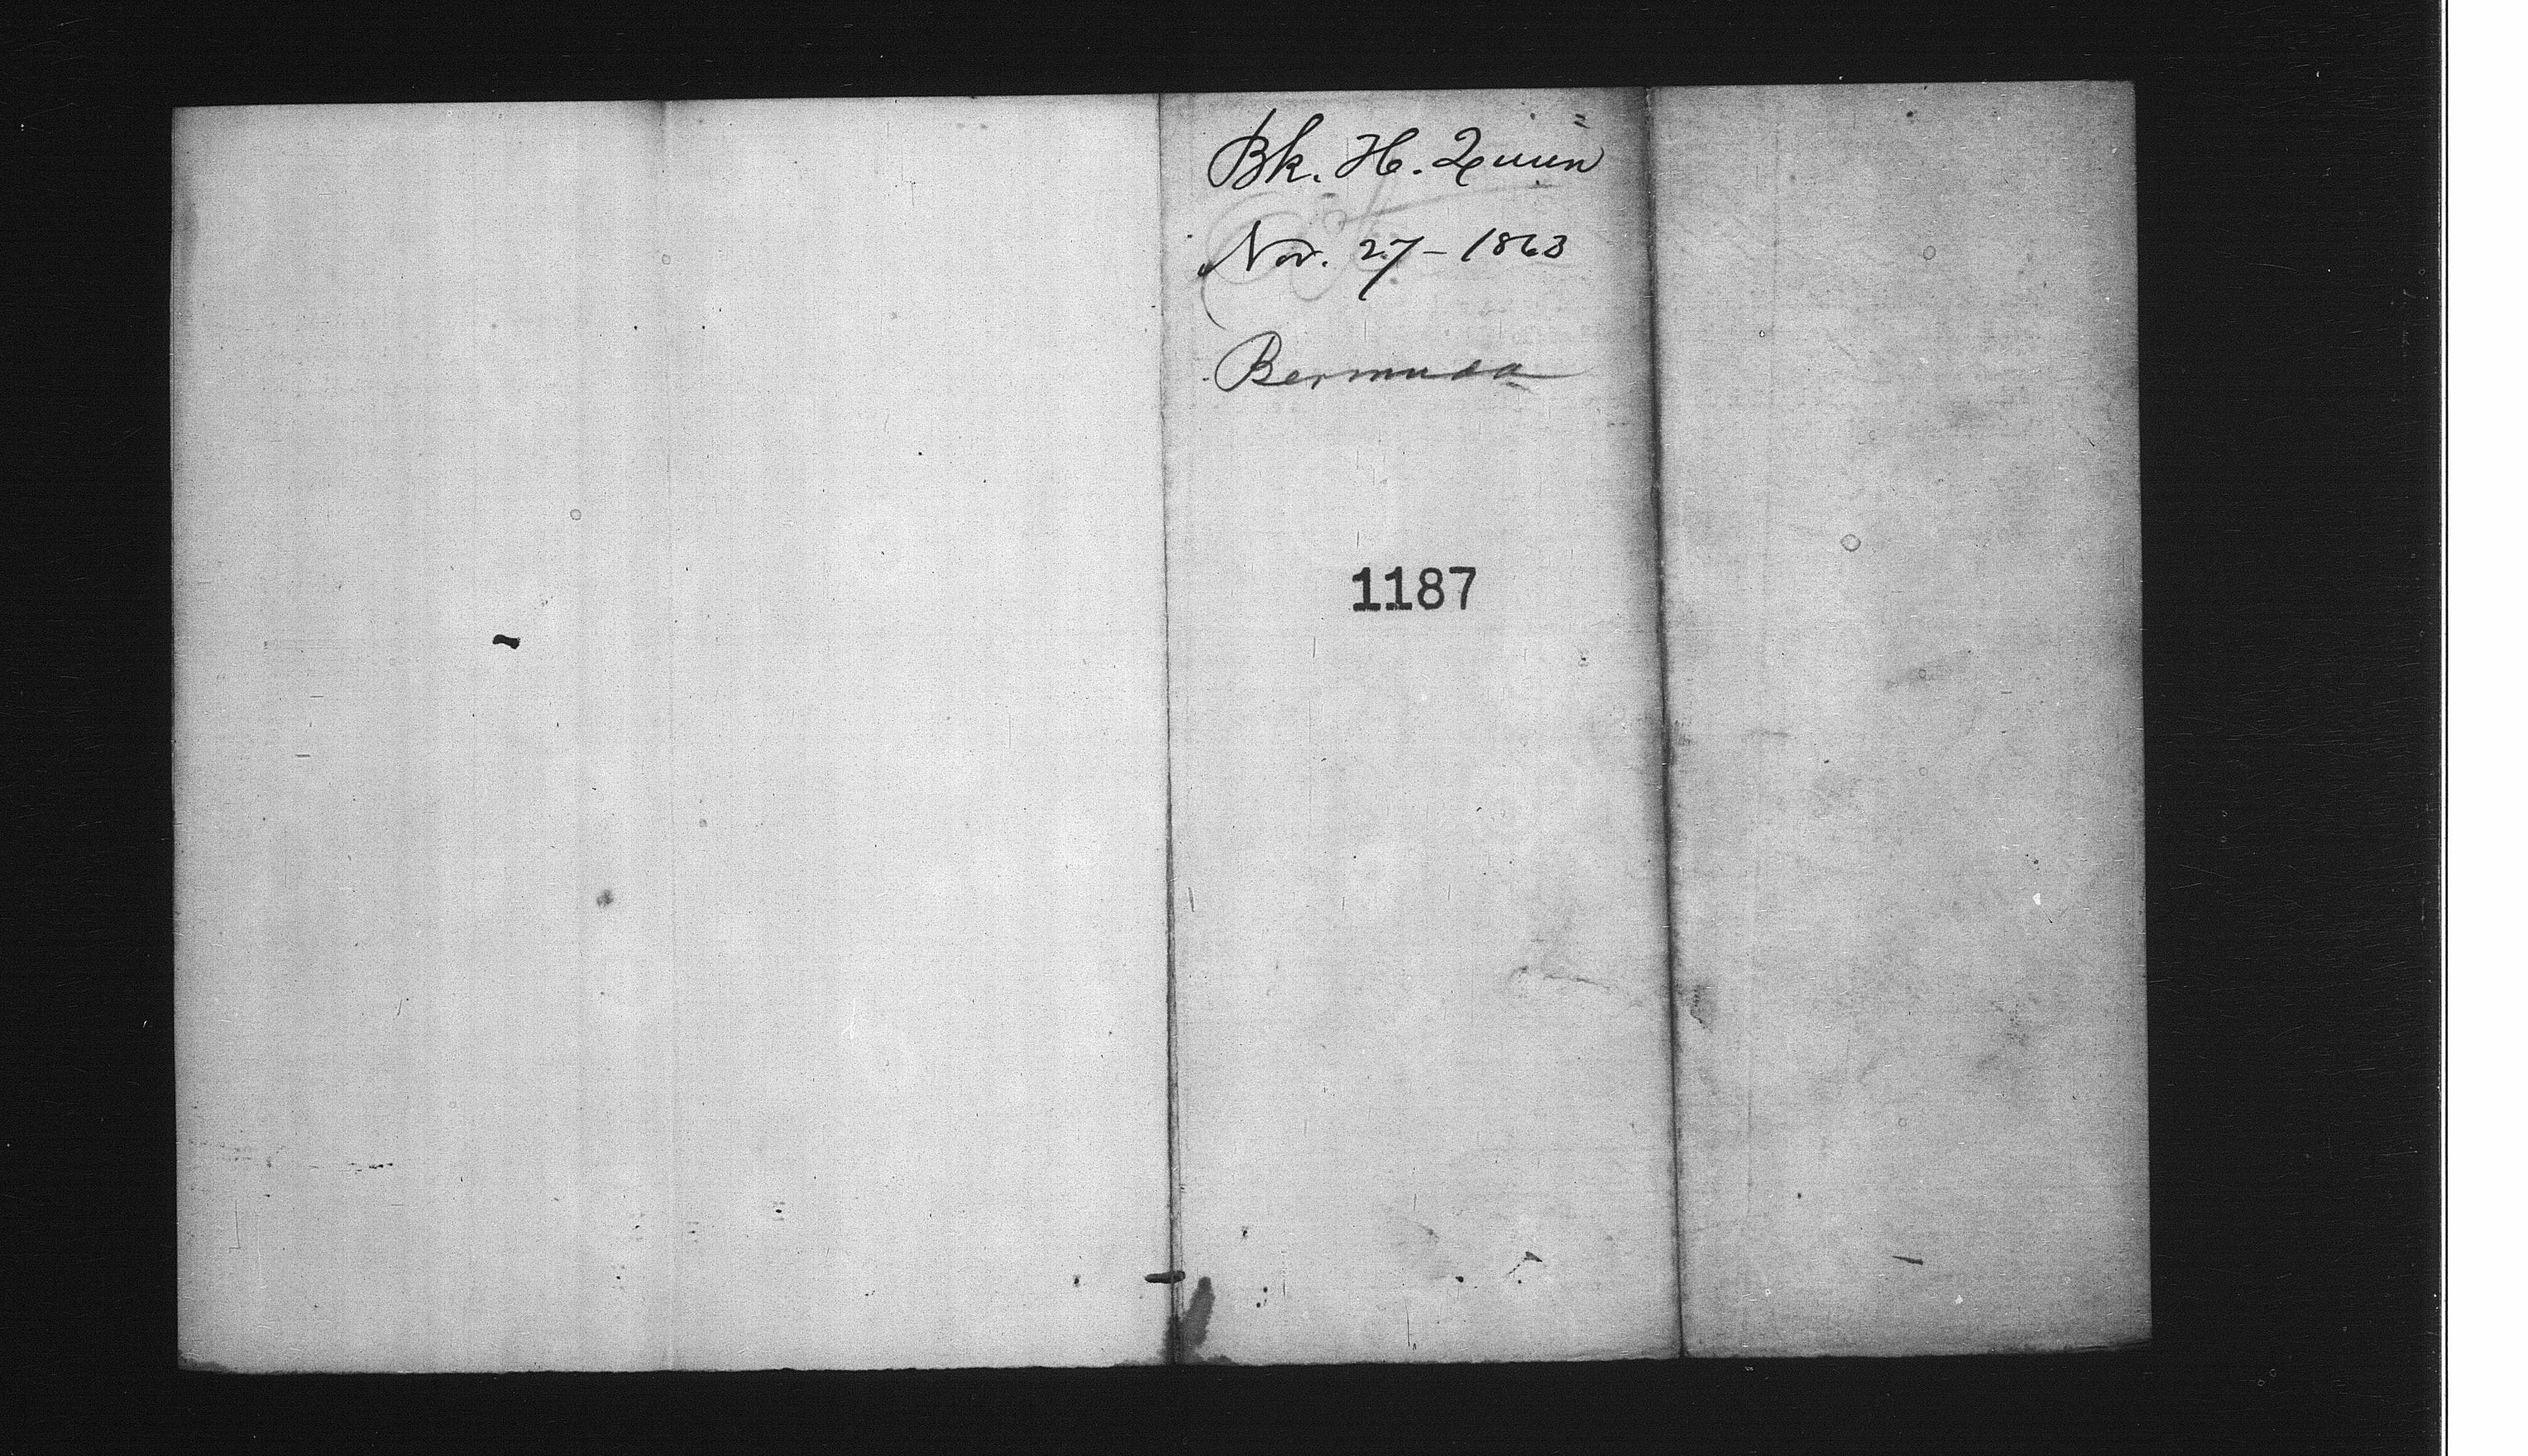 Bk. H. Quinn
Nov. 27 - 1863
Bermuda
1187